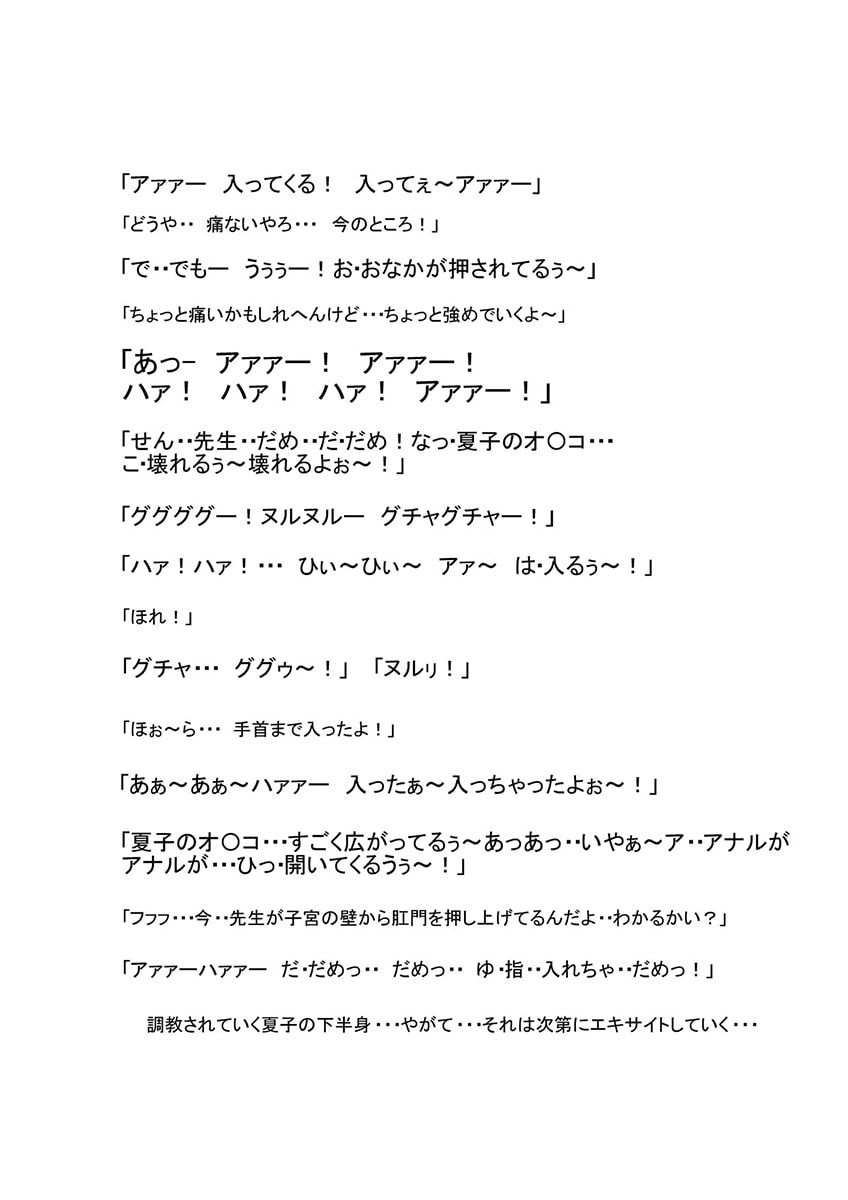 「アァァー　入ってくる！　入ってぇ～アァァー」
「どうや・・　痛ないやろ・・・　今のところ！」
「で・・でもー　うぅぅー！お・おなかが押されてるぅ～」
「ちょっと痛いかもしれへんけど・・・ちょっと強めでいくよ～」
「あっ-　アァァー！　アァァー！
ハァ！　ハァ！　ハァ！　アァァー！」
「せん・・先生・・だめ・・だ・だめ！なっ・夏子のオ〇コ・・・
こ・壊れるぅ～壊れるよぉ～！」
「グググググー！ヌルヌルー　グチャグチャー！」
「ハァ！ハァ！・・・　ひぃ～ひぃ～　アァ～　は・入るぅ～！」
「ほれ！」
「グチャ・・・　ググゥ～！」　「ヌルリ！」
「ほぉ～ら・・・　手首まで入ったよ！」
「あぁ～あぁ～ハァァー　入ったぁ～入っちゃったよぉ～！」
「夏子のオ〇コ・・・すごく広がってるぅ～あっあっ・・いやぁ～ア・・アナルが
アナルが・・・ひっ・開いてくるうぅ～！」
「フフフ・・・今・・先生が子宮の壁から肛門を押し上げてるんだよ・・わかるかい？」
「アァァーハァァー　だ・だめっ・・　だめっ・・　ゆ・指・・入れちゃ・・だめっ！」
調教されていく夏子の下半身・・・やがて・・・それは次第にエキサイトしていく・・・